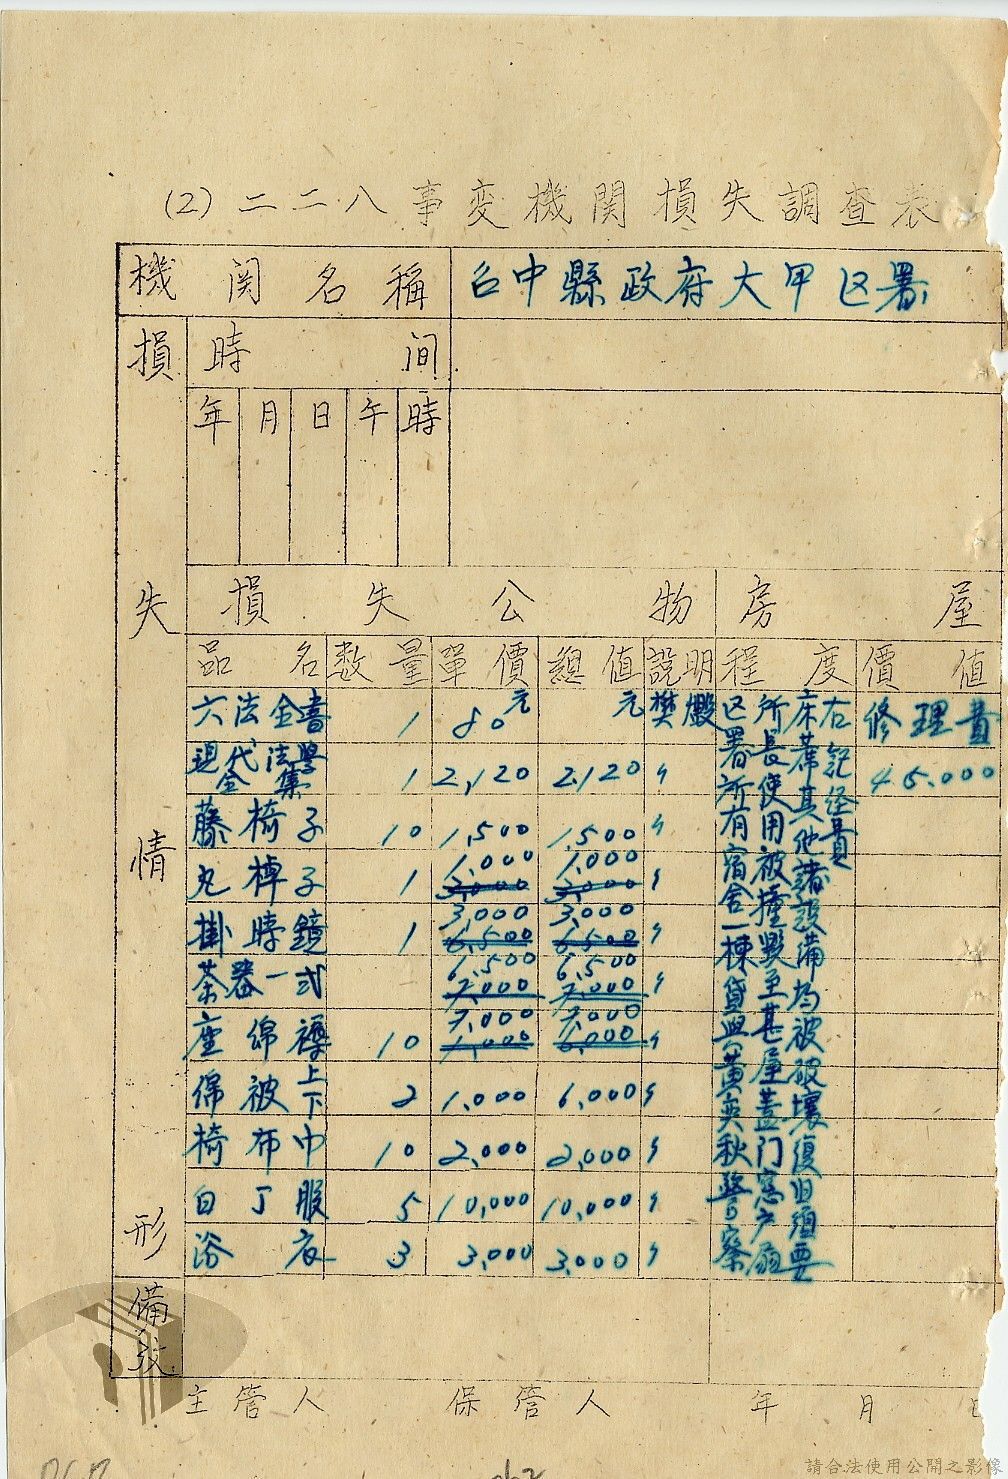 (2)二二八事変機関損失調査表
機関名稱 台中縣政府大甲区署
損失情形
時间
年 月 日 午 時
損失公物 房屋
品名 数量 單價 總值 說明 程度 價值
六法全書 1 80元 元 樊燬
現代法學全集 1 2,120 2,120 〃
藤椅子 10 1,500 1,500 〃
丸棹子 1 1,000 1,000 〃
掛時鐘 1 3,000 3,000 〃
茶器一式 6,500 6,500 〃
座綿褥 10 7,000 7,000 〃
綿被上下 2 1,000 6,000 〃
椅布巾 10 2,000 2,000 〃
白丁服 5 10,000 10,000 〃
浴衣 3 3,000 3,000 〃
区署所有宿舍一棟貸與黃奕秋警察
所長使用被撞毀至甚屋蓋门窓户扇
床蓆其他諸設備均被破壞復旧須要
右記経費
修理費
45.000
備攷
主管人 保管人 年 月 日
請合法使用公開之影像